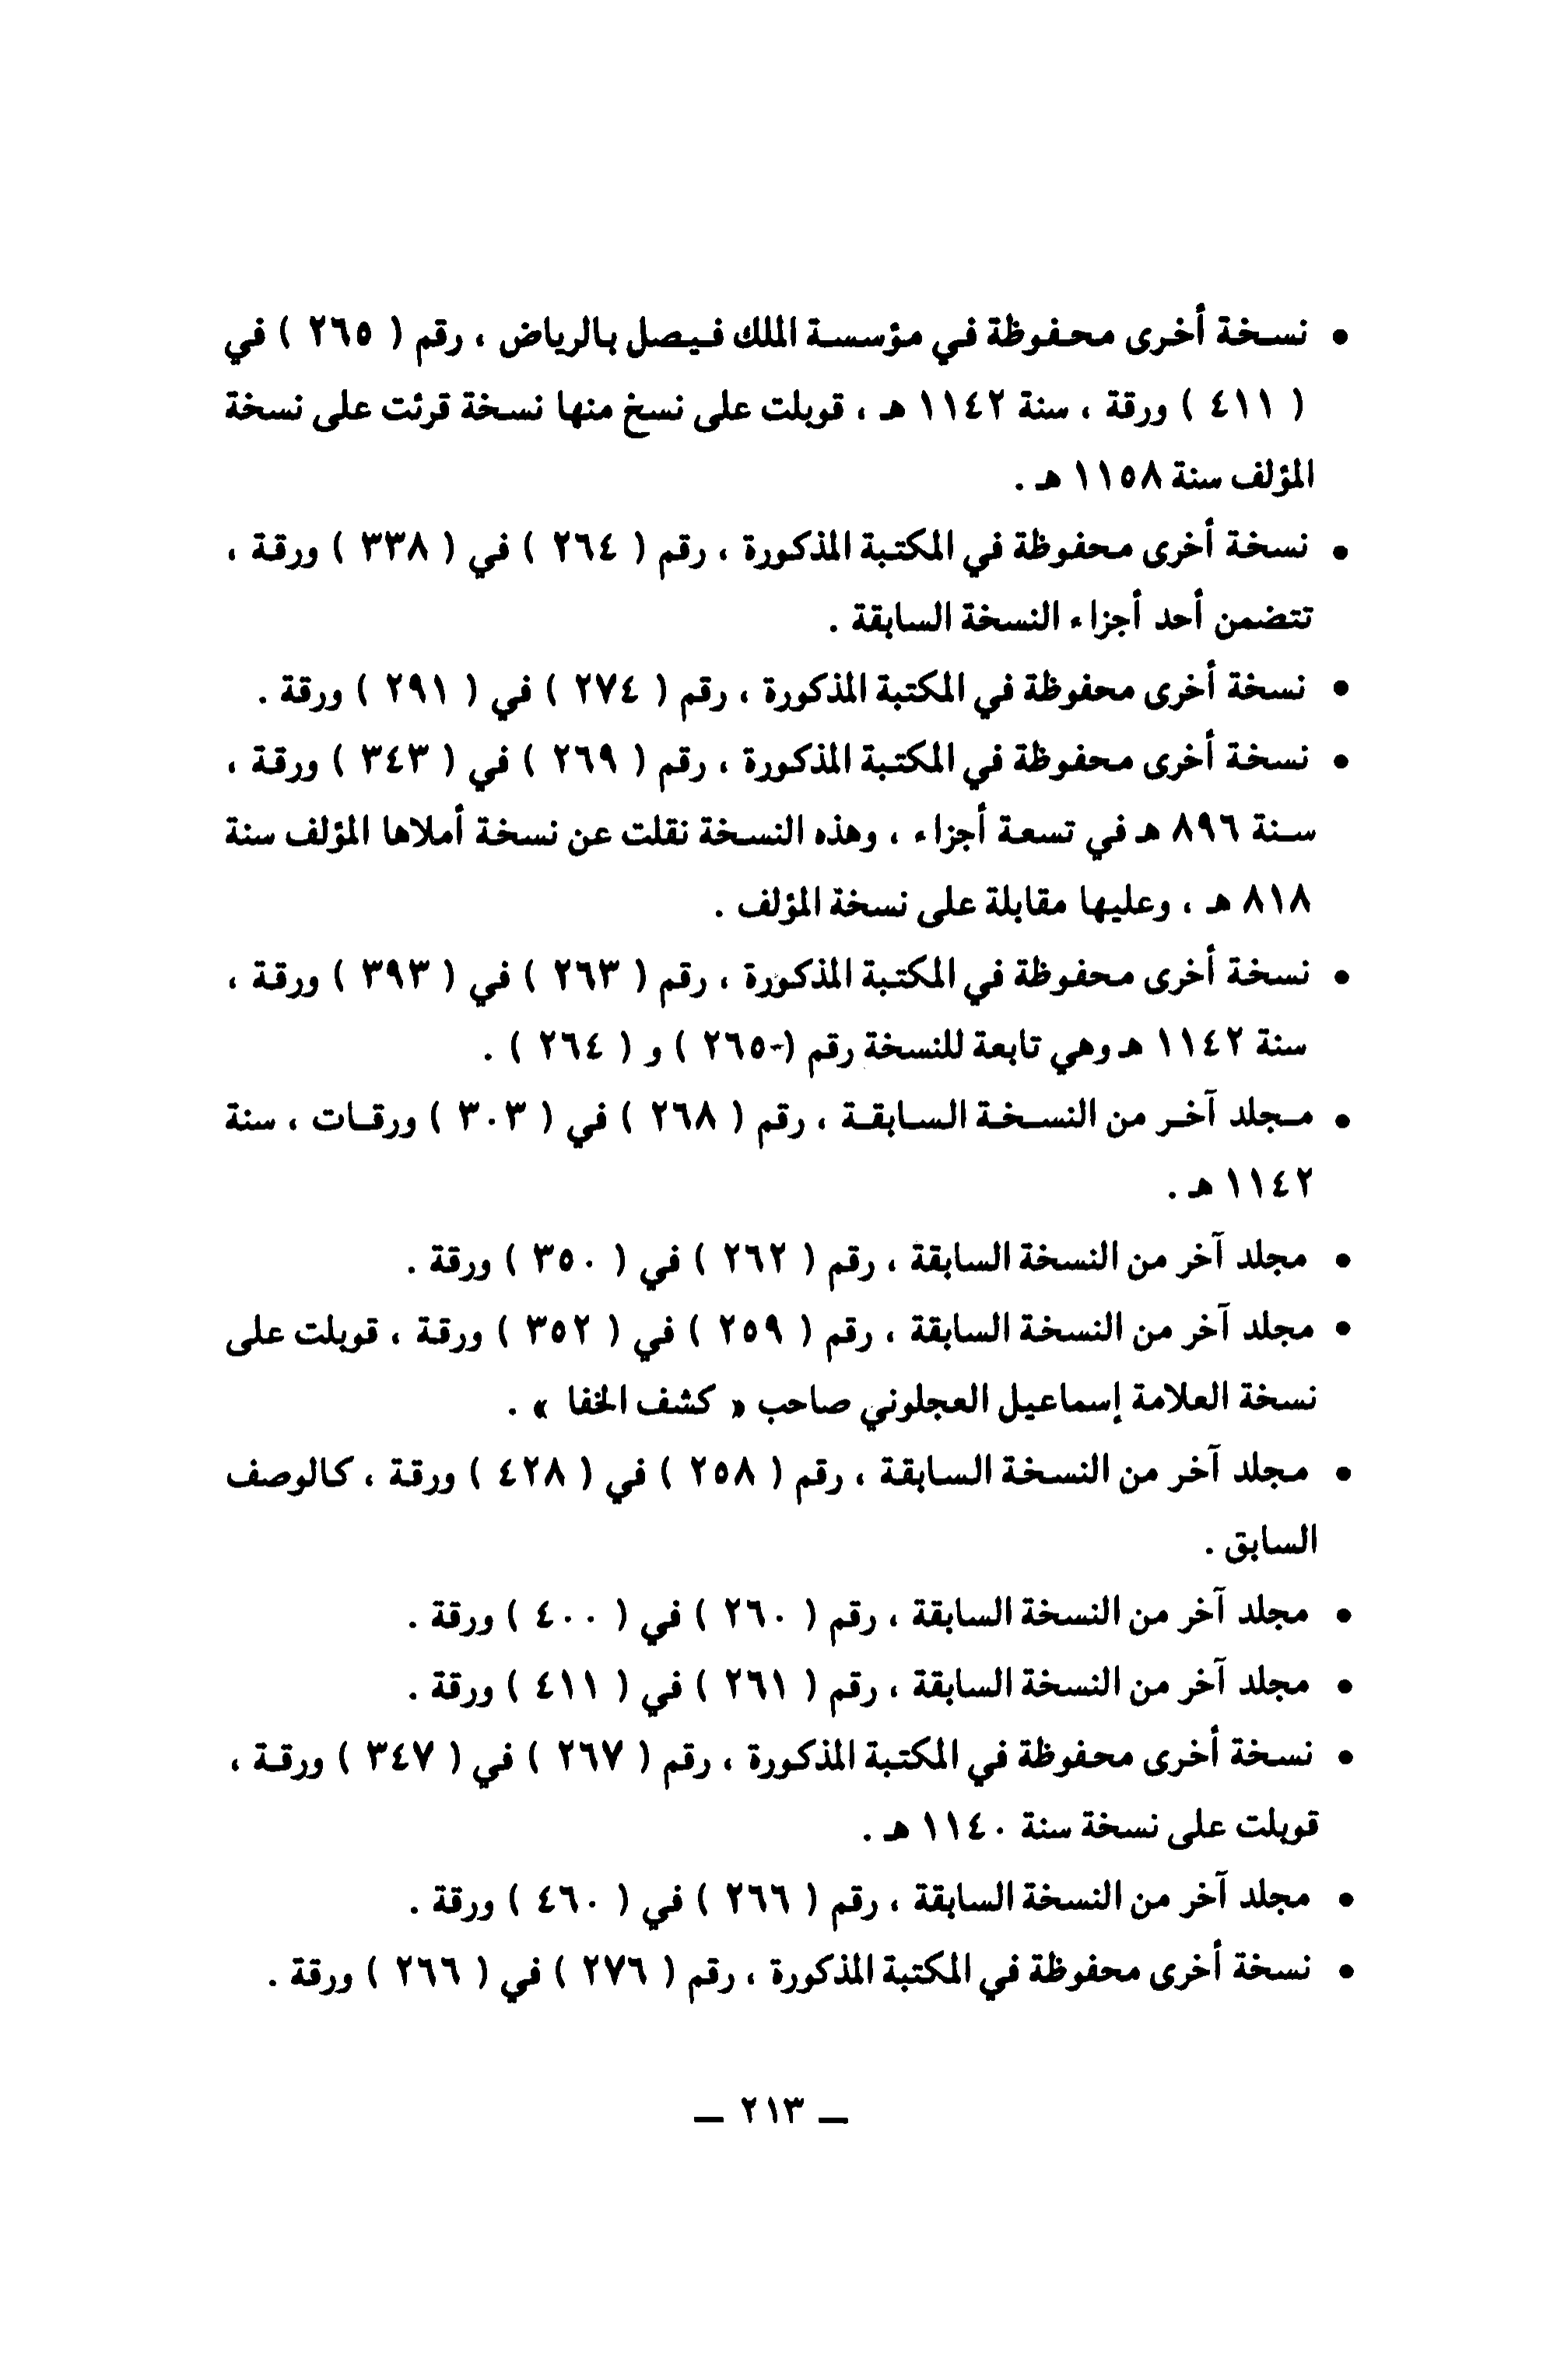 • نسخة أخرى محفوظة في مؤسسة الملك فيصل بالرياض ، رقم ( ٢٦٥ ) في
( ٤١١ ) ورقة ، سنة ١١٤٢ هـ ، قوبلت على نسخ منها نسخة قرئت على نسخة
المؤلف سنة ١١٥٨ هـ .
• نسخة أخرى محفوظة في المكتبة المذكورة ، رقم ( ٢٦٤ ) في ( ٣٣٨ ) ورقة ،
تتضمن أحد أجزاء النسخة السابقة .
• نسخة أخرى محفوظة في المكتبة المذكورة ، رقم ( ٢٧٤ ) في ( ٢٩١ ) ورقة .
• نسخة أخرى محفوظة في المكتبة المذكورة ، رقم ( ٢٦٩ ) في ( ٣٤٣ ) ورقة ،
سنة ٨٩٦ هـ في تسعة أجزاء ، وهذه النسخة نقلت عن نسخة أملاها المؤلف سنة
٨١٨ هـ ، وعليها مقابلة على نسخة المؤلف .
• نسخة أخرى محفوظة في المكتبة المذكورة ، رقم ( ٢٦٣ ) في ( ٣٩٣ ) ورقة ،
سنة ١١٤٢ هـ وهي تابعة للنسخة رقم (-٢٦٥ ) و ( ٢٦٤ ) .
• مجلد آخر من النسخة السابقة ، رقم ( ٢٦٨ ) في ( ٣٠٣ ) ورقات ، سنة
١١٤٢ هـ .
• مجلد آخر من النسخة السابقة ، رقم ( ٢٦٢ ) في ( ٣٥٠ ) ورقة .
• مجلد آخر من النسخة السابقة ، رقم ( ٢٥٩ ) في ( ٣٥٢ ) ورقة ، قوبلت على
نسخة العلامة إسماعيل العجلوني صاحب « كشف الخفا » .
• مجلد آخر من النسخة السابقة ، رقم ( ٢٥٨ ) في ( ٤٢٨ ) ورقة ، كالوصف
السابق .
• مجلد آخر من النسخة السابقة ، رقم ( ٢٦٠ ) في ( ٤٠٠ ) ورقة .
• مجلد آخر من النسخة السابقة ، رقم ( ٢٦١ ) في ( ٤١١ ) ورقة .
• نسخة أخرى محفوظة في المكتبة المذكورة ، رقم ( ٢٦٧ ) في ( ٣٤٧ ) ورقة ،
قوبلت على نسخة سنة ١١٤٠ هـ .
• مجلد آخر من النسخة السابقة ، رقم ( ٢٦٦ ) في ( ٤٦٠ ) ورقة .
• نسخة أخرى محفوظة في المكتبة المذكورة ، رقم ( ٢٧٦ ) في ( ٢٦٦ ) ورقة .
— ٢١٣ —